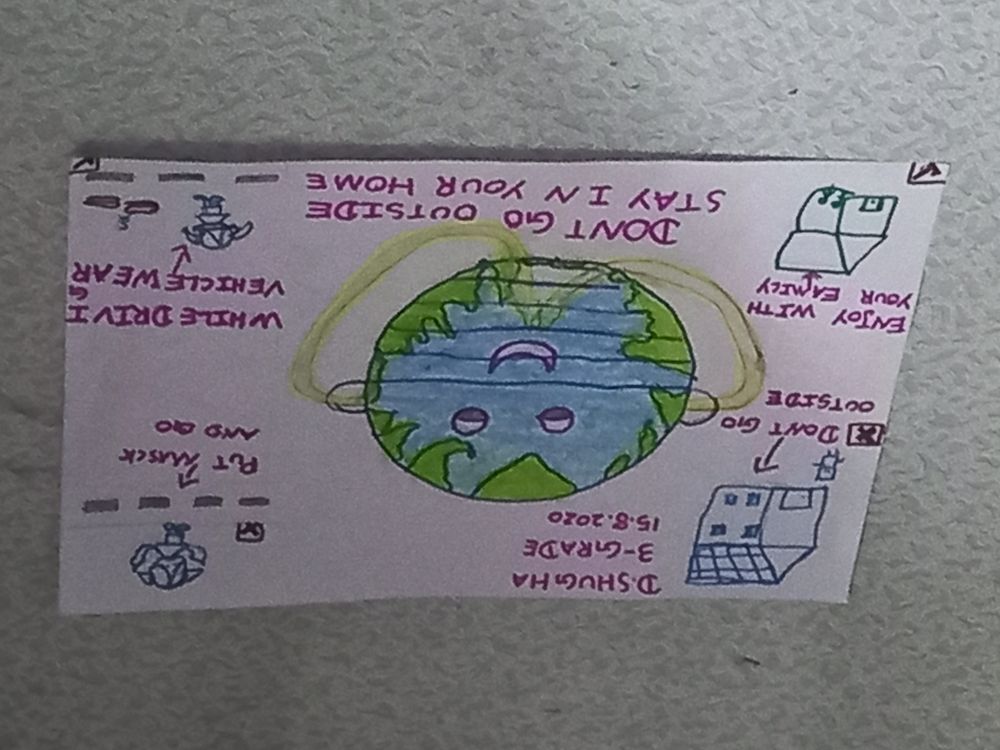 D.SHUGHA
3-GRADE
15.8.2020
DONT GO
OUTSIDE
PUT MASCK
AND GO
ENJOY WITH
YOUR FAMILY
WHILE DRIVI
G
VEHICLE WEAR
DONT GO OUTSIDE
STAY IN YOUR HOME